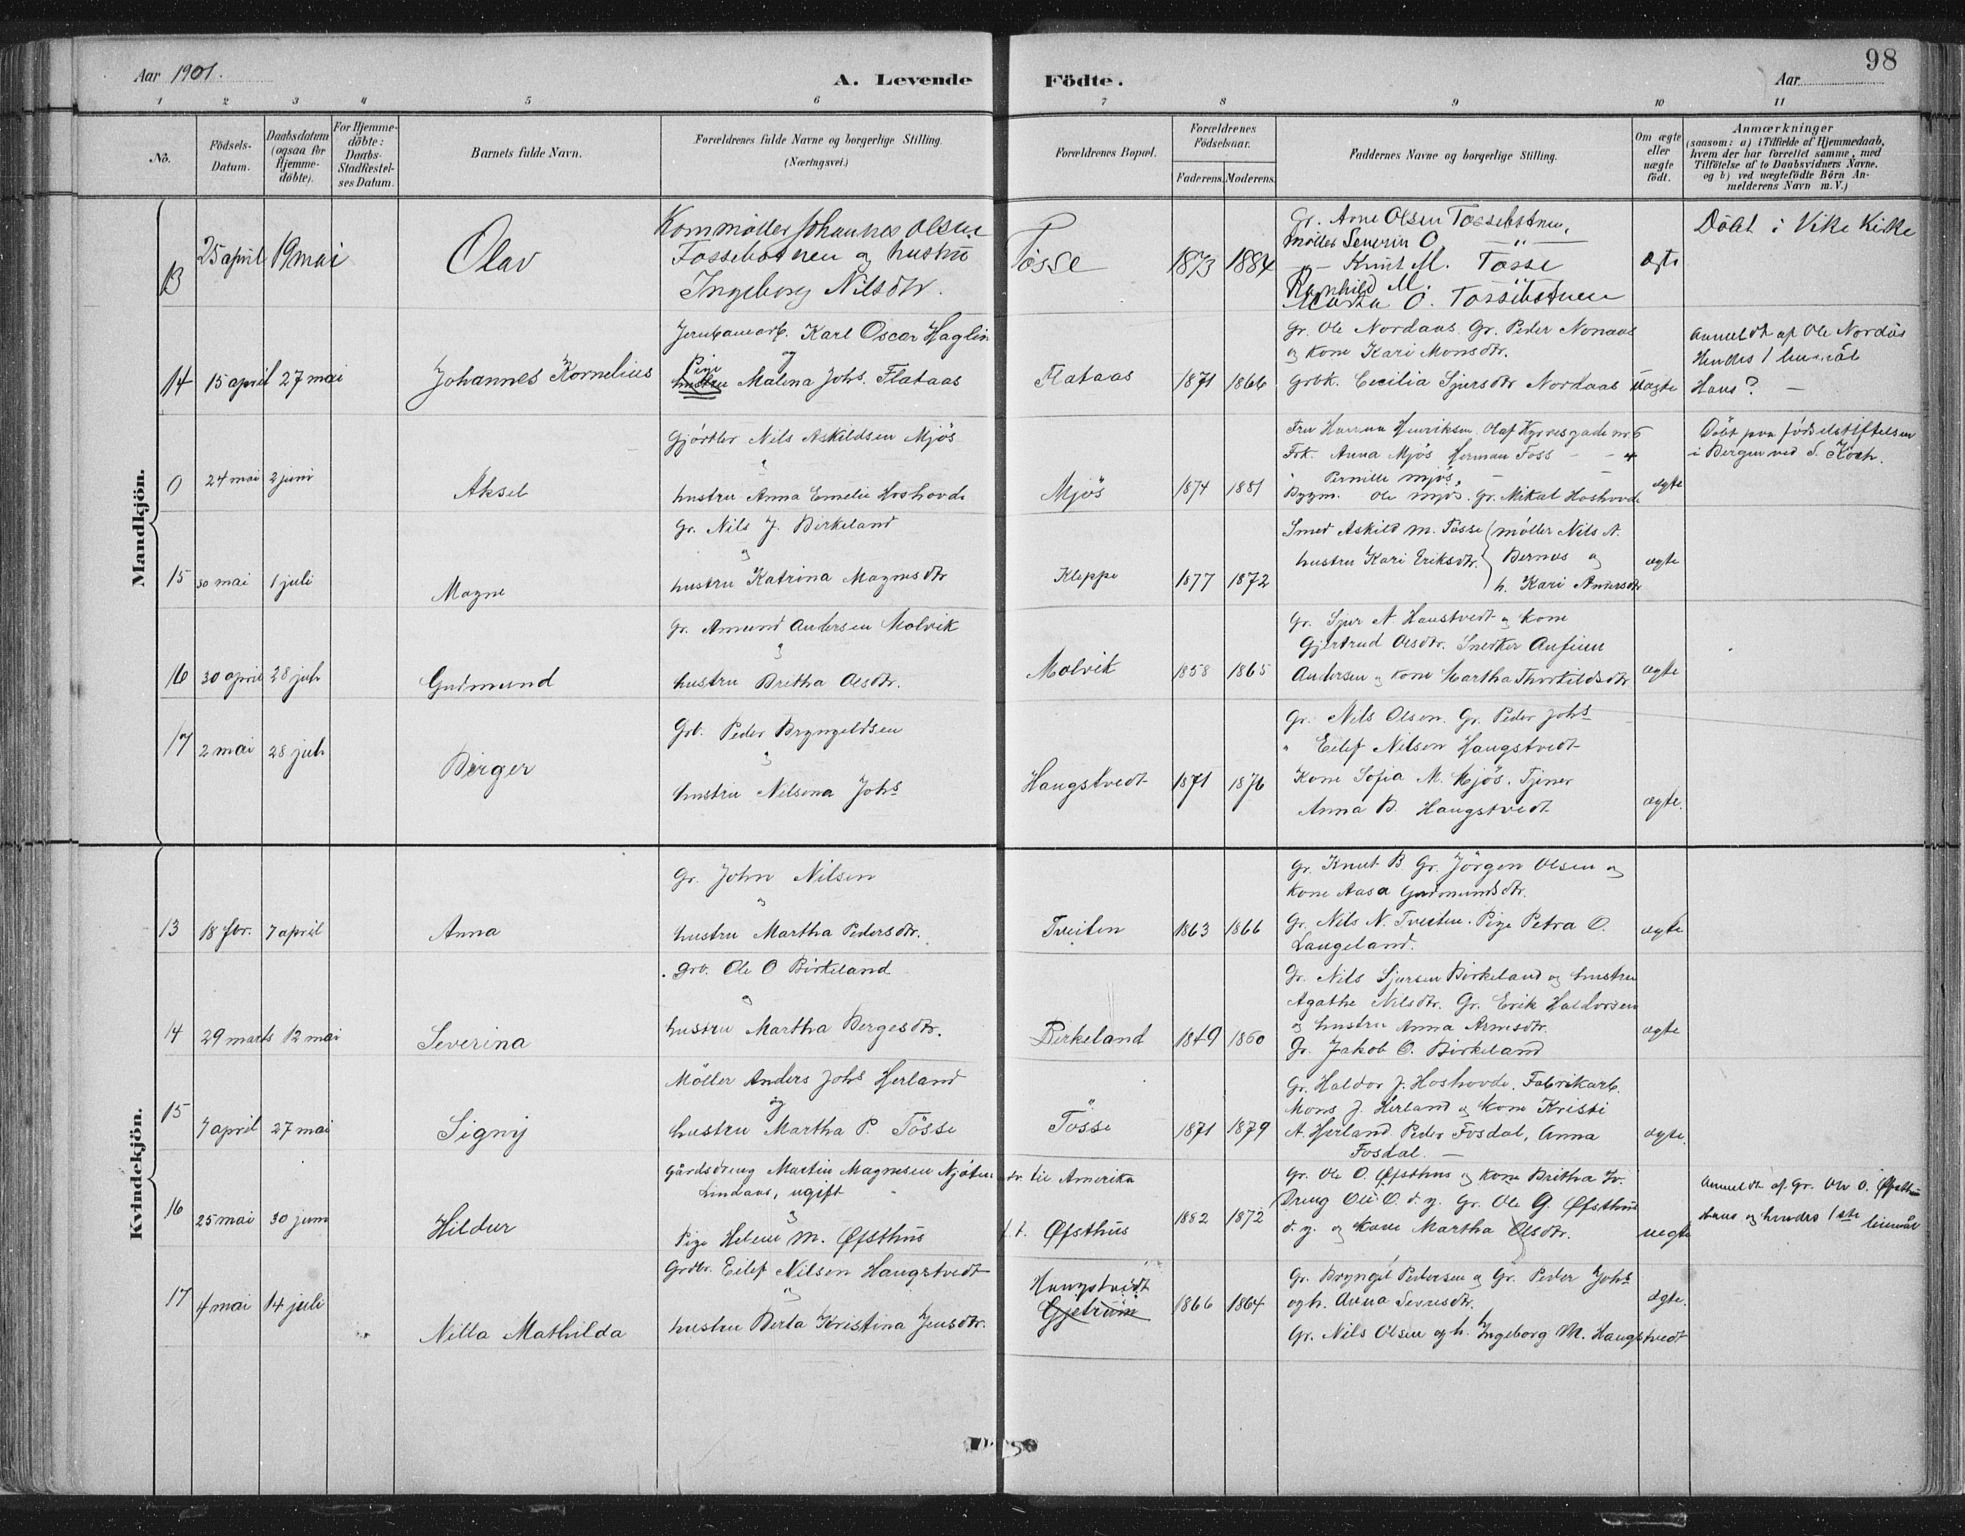 98
Aar 1901.
A. Levende Födte.
Aar
1 2 3 4 5 6 7 8 9 10 11
No.
Födsels-Datum.
Daabsdatum (ogsaa for Hjemme-döbte).
For Hjemme-döbte: Daabs-Stadfæstel-ses Datum.
Barnets fulde Navn.
Forældrenes fulde Navne og borgerlige Stilling.
(Næringsvei.)
Forældrenes Bopæl.
Forældrenes Födselsaar.
Faderens. Moderens.
Faddernes Navne og borgerlige Stilling.
Om ægte eller uægte födt.
Anmærkninger
(saasom: a) i Tilfælde af Hjemmedaab, hvem der har forrettet samme, med Tilföielse af to Daabsvidners Navne, og b) ved uægtefödte Börn An-melderens Navn m. V.)
Mandkjön.
13 25 april 19 mai
Olav
Kornmøller Johannes Olsen
Fossebotnen og hustru
Ingeborg Nilsdtr.
Tösse
1873 1884
Gr. Arne Olsen Tössebotnen,
Møller Severin O. — " —
— Knut M. Tösse
Ragnhild M.
Marta O. Tössebotnen
ægte
Döbt i Vike Kirke
14 15 april 27 mai
Johannes Kornelius
Jernbanearb. Karl Oscar Haglin
og
Pige hustru Malena Johs. Flataas
Flataas
1871 1866
Gr. Ole Nordaas. Gr. Peder Nonaas
og kone Kari Monsdtr.
Grbk. Cecilia Sjursdtr Nordaas
uægte
Anmeldt af Ole Nordås
Hendes 1 leiermål
Hans? —
0 24 mai 2 juni
Aksel
Gjörtler Nils Askildsen Mjös
og
hustru Anna Emelie Hoshovde
Mjös
1874 1881
Fru Hanna Henriksen Olaf Kyrresgade nr 6
Frk. Anna Mjös Herman Foss — — 4
" Pernille Mjös, —
Bygm. Ole Mjös. Gr. Mikal Hoshovde
ægte
Döbt paa födselstiftelsen
i Bergen ved S. Koch.
15 30 mai 1 juli
Magne
Gr. Nils J. Birkeland
og
hustru Katrina Magnesdtr
Kleppe
1877 1872
Smed Askild M. Tösse møller Nils A.
hustru Kari Eriksdtr. Bernes og
h. Kari Andersdtr
ægte
16 30 april 28 juli
Gudmund
Gr. Amund Andersen Molvik
og
hustru Britha Olsdtr.
Molvik
1858 1865
Gr. Sjur A Haustvedt og kone
Gjertrud Olsdtr. Snerker Anfinn
Andersen og kone Martha Thorkildsdtr
ægte
17 2 mai 28 juli
Birger
Grb. Peder Bryngeldsen
og
hustru Nilsina Johs
Haugstvedt
1871 1876
Gr. Nils Olsen. Gr. Peder Johs
" Eilef Nilsen Haugstvedt
Kone Sofia M. Mjös. Tjener
Anna B. Haugstvedt
ægte.
Kvindekjön.
13 18 fbr. 7 april
Anna
Gr. John Nilsen
og
hustru Martha Pedersdtr.
Tveiten
1863 1866
Gr. Knut B Gr. Jörgen Olsen og
kone Aasa Gudmundsdtr.
Gr. Nils N. Tveiten. Pige Petra O.
Langeland.
ægte
14 29 marts 12 mai
Severina
Grb. Ole O Birkeland
og
hustru Martha Bergesdtr.
Birkeland
1849 1860
Gr. Nils Sjursen Birkeland og hustru
Agathe Nilsdtr. Gr. Erik Haldorsen
og hustru Anna Arnesdtr.
Gr. Jakob O. Birkeland
ægte
15 7 april 27 mai
Signy
Möller Anders Johs Herland
og
hustru Martha P. Tösse
Tösse
1871 1879
Gr. Haldor J. Hoshovde. Fabrikarb.
Mons J. Herland og kone Kristi
A. Herland Peder Fosdal, Anna
Fosdal. —
ægte.
16 25 mai 30 juni
Hildur
Gårdsdreng Martin Magnesen Njåten
Lindaas, ugift
og
Pige Helene M. Øfsthus
til Amerika
f. t. Øfsthus
1882 1872
Gr. Ole O. Øfsthus og kone Britha Iv.
Dreng Ole O. d. y. Gr. Ole G. Øfsthus
d. y. og kone Martha Olsdtr.
uegte
Anmeldt af Gr. Ole O. Øfsthus
Hans og hendes 1ste leiermål
17 4 mai 14 juli
Nilla Mathilda
Grdbr. Eilef Nilsen Haugstvedt
og
hustru Berta Kristina Jensdtr.
Haugstvedt
Gjetrum
1866 1864
Gr. Bryngel Pedersen og Gr. Peder Johs
og h. Anna Sevresdtr.
Gr. Nils Olsen og h. Ingeborg M. Haugstvedt
ægte.